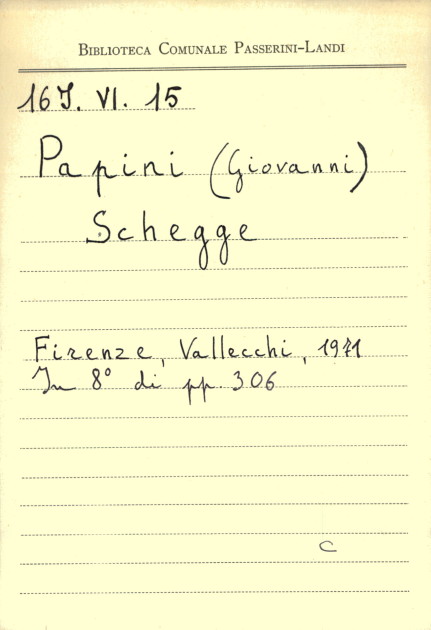 BIBLIOTECA COMUNALE PASSERINI-LANDI
16J. VI. 15
Papini (Giovanni)
Schegge
Firenze, Vallecchi, 1971
In 8° di pp. 306
C